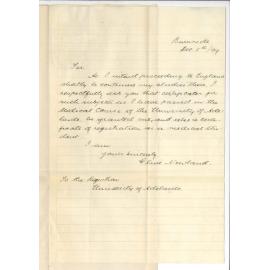 Burnside
Dec. 5th /89
Sir
As I intend proceeding to England
shortly to continue my studies there, I
respectfully ask you that certificates for
such subjects as I have passed in the
Medical Course of the University of Ade-
laide, be granted me, and also a certi-
ficate of registration as a medical stu-
dent.
I am
yours sincerely
Clive Newland.
To the Registrar
University of Adelaide.